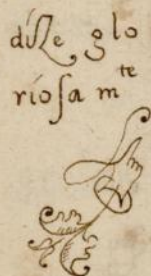 dize glo
riosa m^te